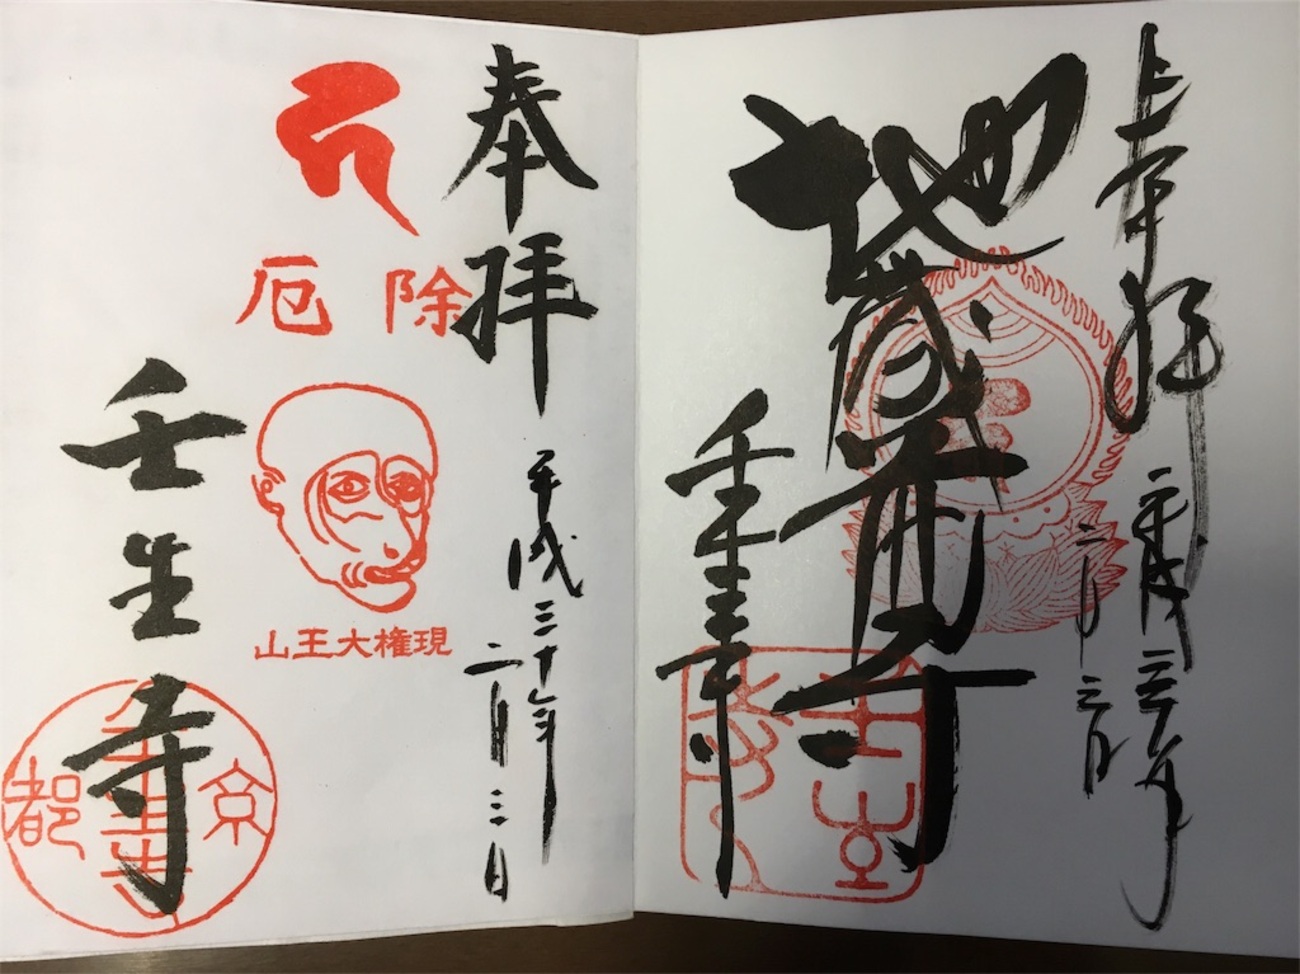 奉拝
平成三十年
二月三日
地蔵尊
壬生寺
奉拝
平成三十年
二月三日
除厄
山王大権現
壬生寺
京都
壬生寺